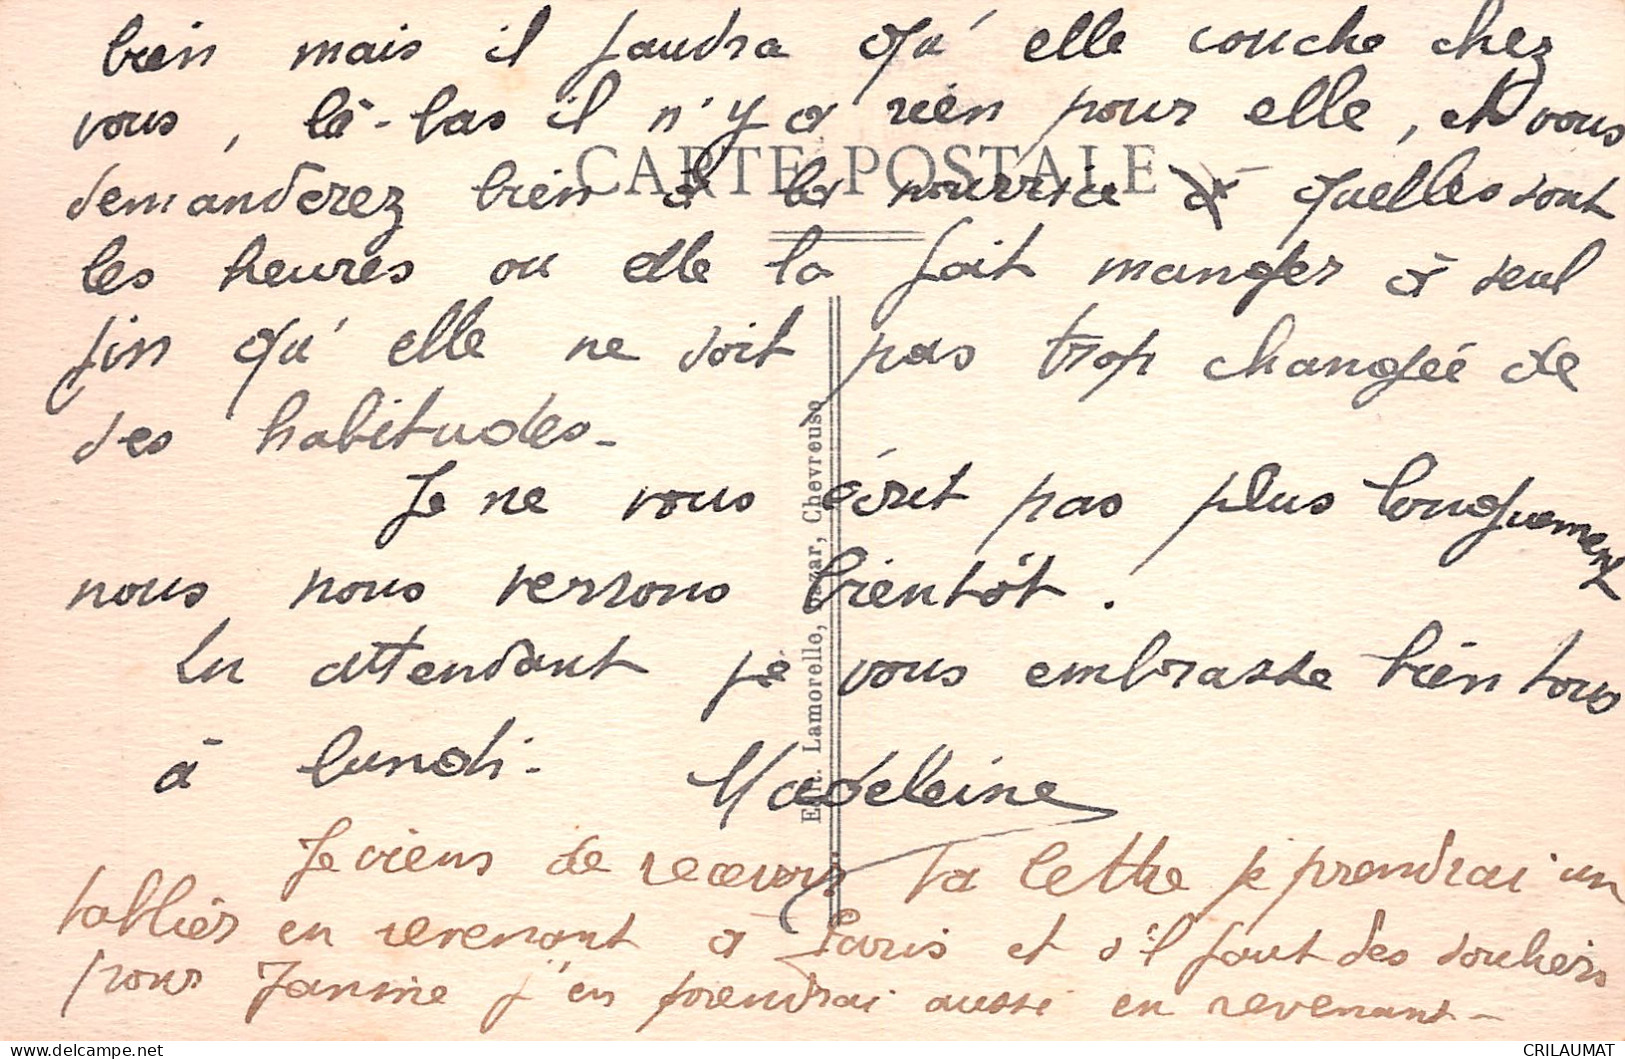 bien mais il faudra qu'elle couche chez
vous, là-bas il n'y a rien pour elle, et vous
CARTE POSTALE
demanderez bien à la nourrice quelles sont
les heures ou elle la fait manger à seul
fin qu'elle ne soit pas trop changée de
des habitudes -
Je ne vous écrit pas plus longuement
nous nous verrons bientôt.
En attendant je vous embrasse bien tous
à lundi - Madeleine
Je viens de recevoir ta lettre je prendrai un
tablier en revenant à Paris et s'il faut des souliers
pour Janine j'en prendrai aussi en revenant -
Edit. Lamorelle, Bazar, Chevreuse
CRILAUMAT